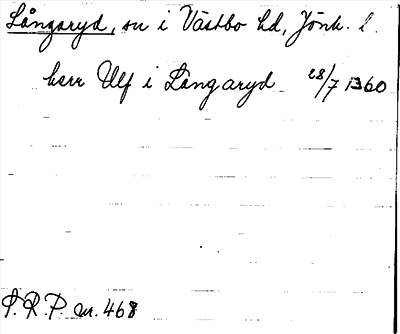 Långaryd, sn i Västbo hd, Jönk. l.
herr Ulf i Långaryd 28/7 1360
S.R.P. nr. 468